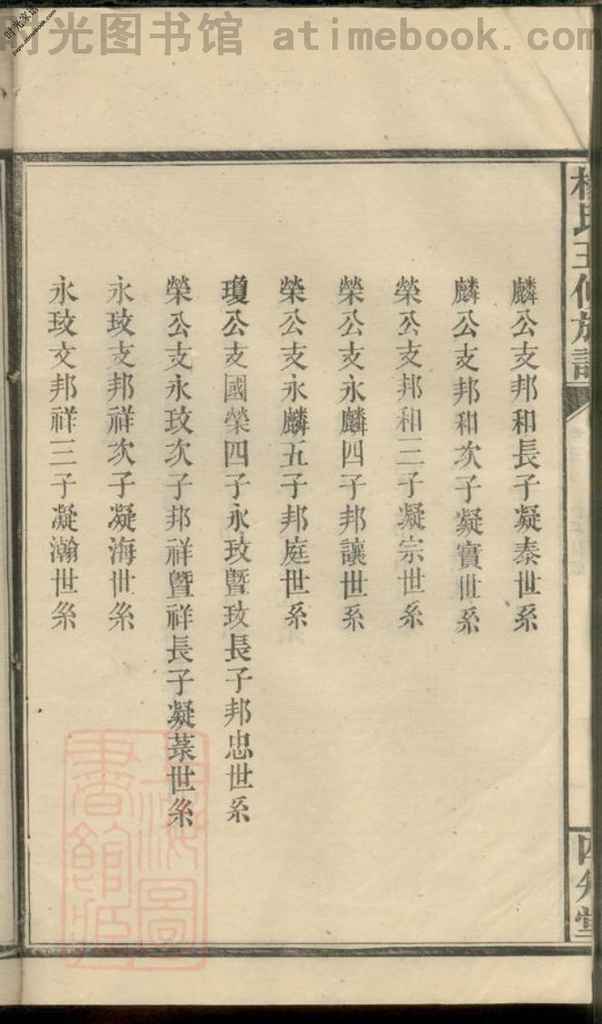 时光图书馆 atimebook.com
麟公支邦和長子凝泰世系
麟公支邦和次子凝實世系
榮公支邦和三子凝宗世系
榮公支永麟四子邦讓世系
榮公支永麟五子邦庭世系
瓊公支國榮四子永玟暨玟長子邦忠世系
榮公支永玟次子邦祥暨祥長子凝菉世系
永玟支邦祥次子凝海世系
永玟支邦祥三子凝瀚世系